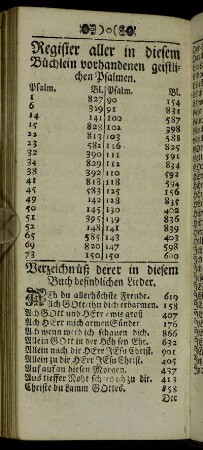 Register aller in diesem
Büchlein vorhandenen geistli-
chen Psalmen.
Psalm. Bl. Psalm. Bl.
6 827 90 154
8 359 91 831
14 141 100 587
15 828 102 398
22 823 103 588
23 582 116 825
32 390 111
38 392 110 594
41 813 118 594
45 583 125 456
49 142 128 835
50 145 130 402
51 395 139 836
52 148 141 839
65 585 143 403
69 820 147 598
73 150 150 600
Verzeichnüß derer in diesem
Buch befindlichen Lieder.
Ach du allerhöchste Freude. 619
Ach Gott thu dich erbarmen. 158
Ach Gott und HErr / wie groß 407
Ach HErr mich armen Sünder 176
Ach wenn werd ich schauen dich. 866
Allein GOtt in der Höh sey Ehr. 632
Allein nach dir HErr JEsu Christ. 901
Allein zu dir HErr JEsu Christ. 405
Auf auf an diesen Morgen. 437
Aus tieffer Noht schrey ich zu dir. 413
Christe du Lamm GOttes. 858
Der